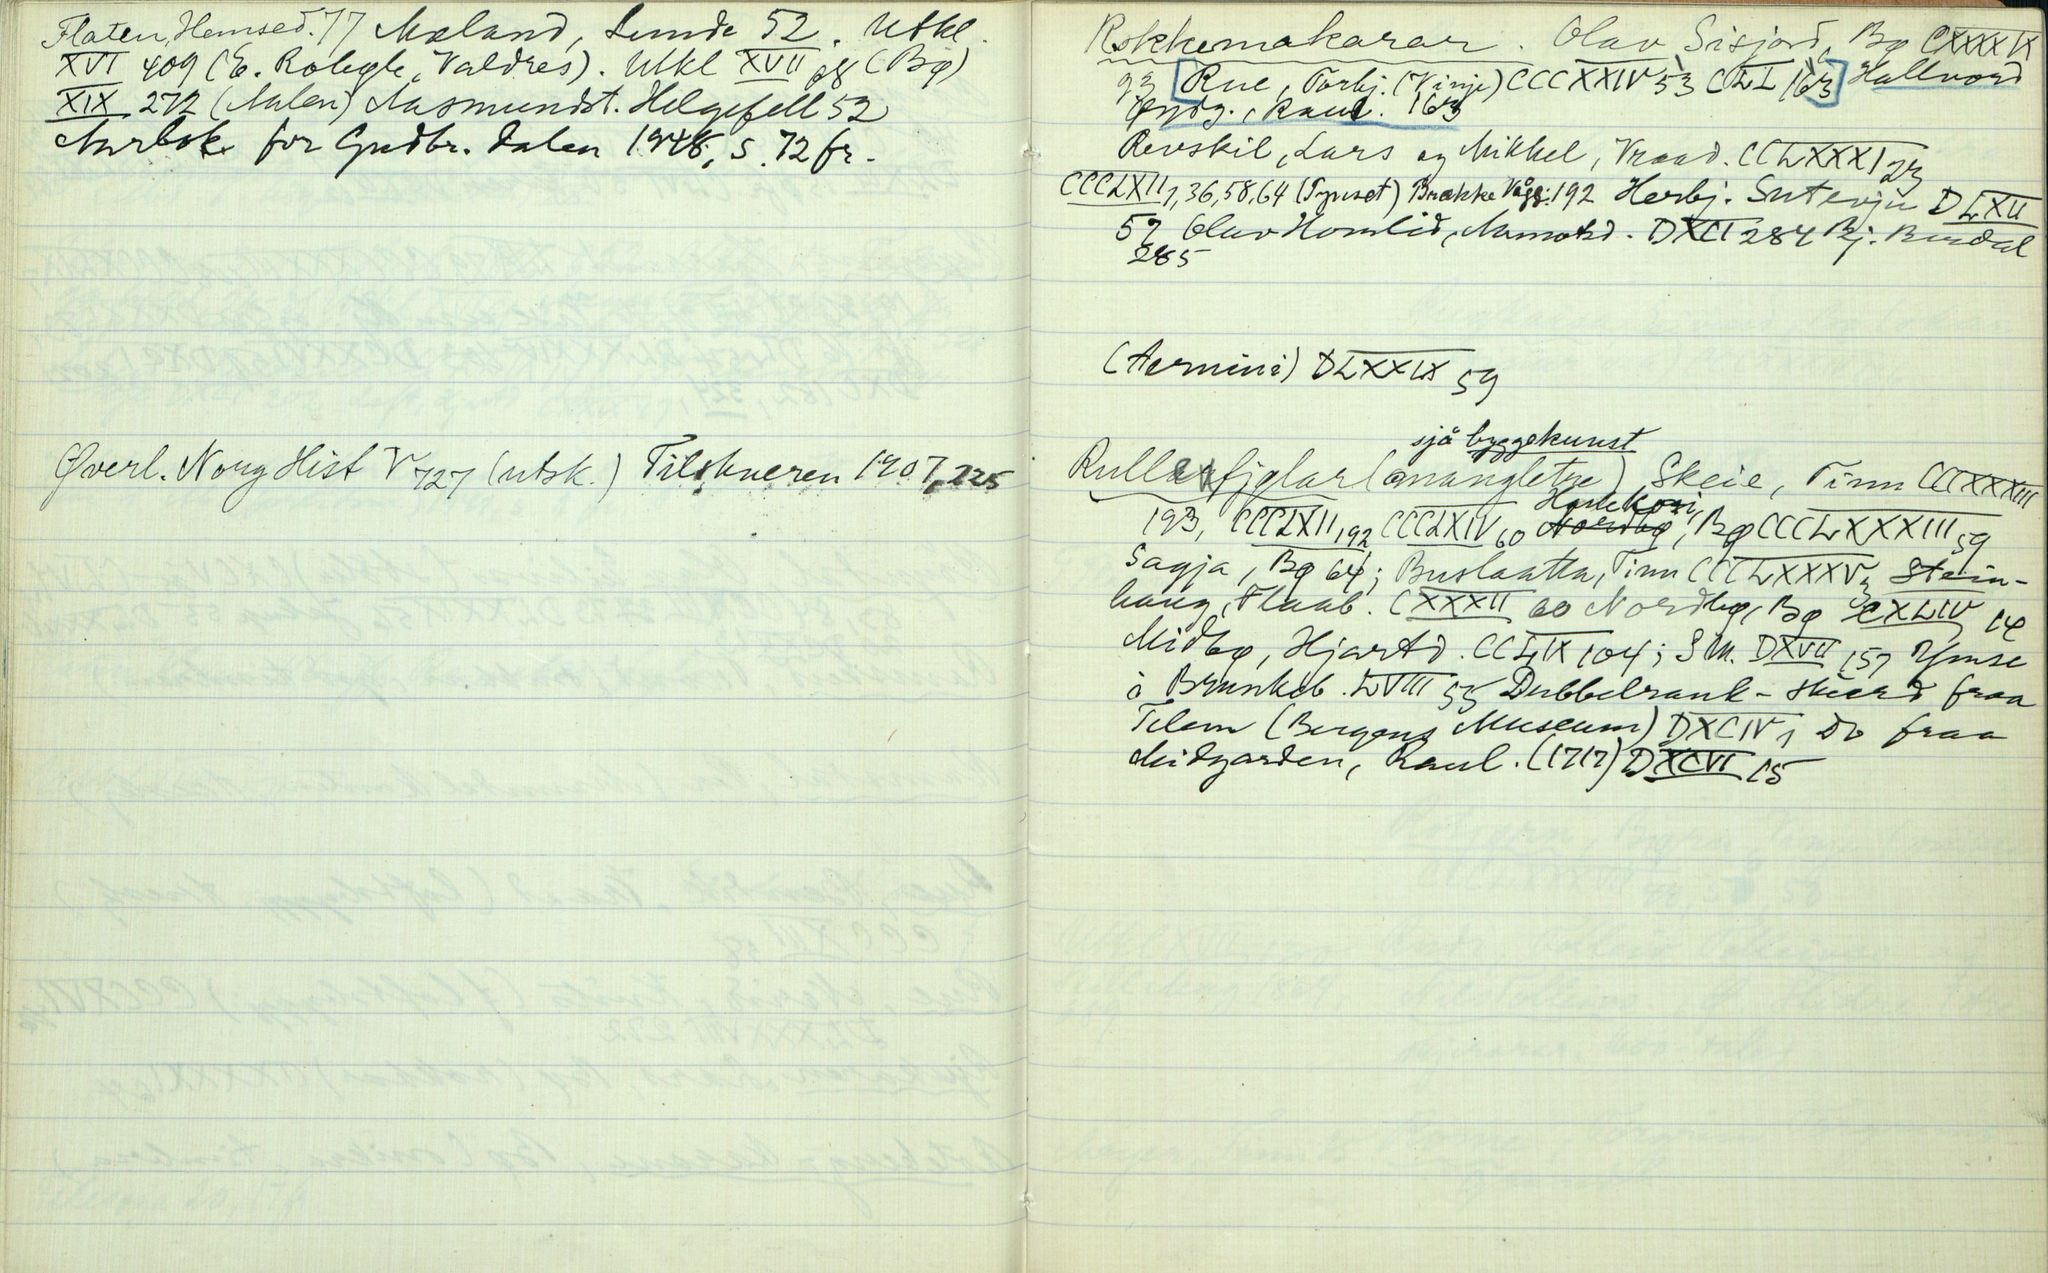 Flaten, Hemsed. 77 Maland, Lunde 52. Utkl.
XVI 409 (E. Rolegh, Valdres). Utkl XVII 98 (Bø)
XIX 272 (Aalen) Aasmundst. Helgefell 52
Aarbok for Gudbr. dalen 1948, s. 72 fr.
Øverl. Norg Hist V 727 (utsk.) Tilskueren 1907, 225
Rokkemakarar. Olav Sisjord, Bø CXXXIX
93 [Rue, Torbj. (Vinje) CCCXXIV 53 CLI 163] Hallvord
Raul. 163
Revskil, Lars og Mikkel, Vraad. CCLXXXI 23
CCCLXII 1, 36, 58, 64 (Tynset) Brække Vågå: 192 Herbj. Sutevju DLXII
57 Olav Homlid, Aamotsd. DXCI 284 Bj. Burdal
285
(Termini) DLXXIX 59
sjå byggekunst
Rullefjølar (mangletre) Skeie, Tinn CCCXXXIII
Hovekori
193, CCCLXII 192 CCCLXIV 60 Nordbø, Bø CCCLXXXIII 59
Sagja, Bø 64; Buslaatta, Tinn CCCLXXXV 3 Stein-
haug, Flaab. CXXXII 60 Nordbø, Bø CXLIV 14
Midbø, Hjartd. CCLIX 104; S M. DXVII 157 Ymse
i Brunkeb. LVIII 55 Dubbelrank-skurd fraa
Telem (Bergens Museum) DXCIV 1 Do fraa
Midgarden, Raul. (1717) DXCVI 15